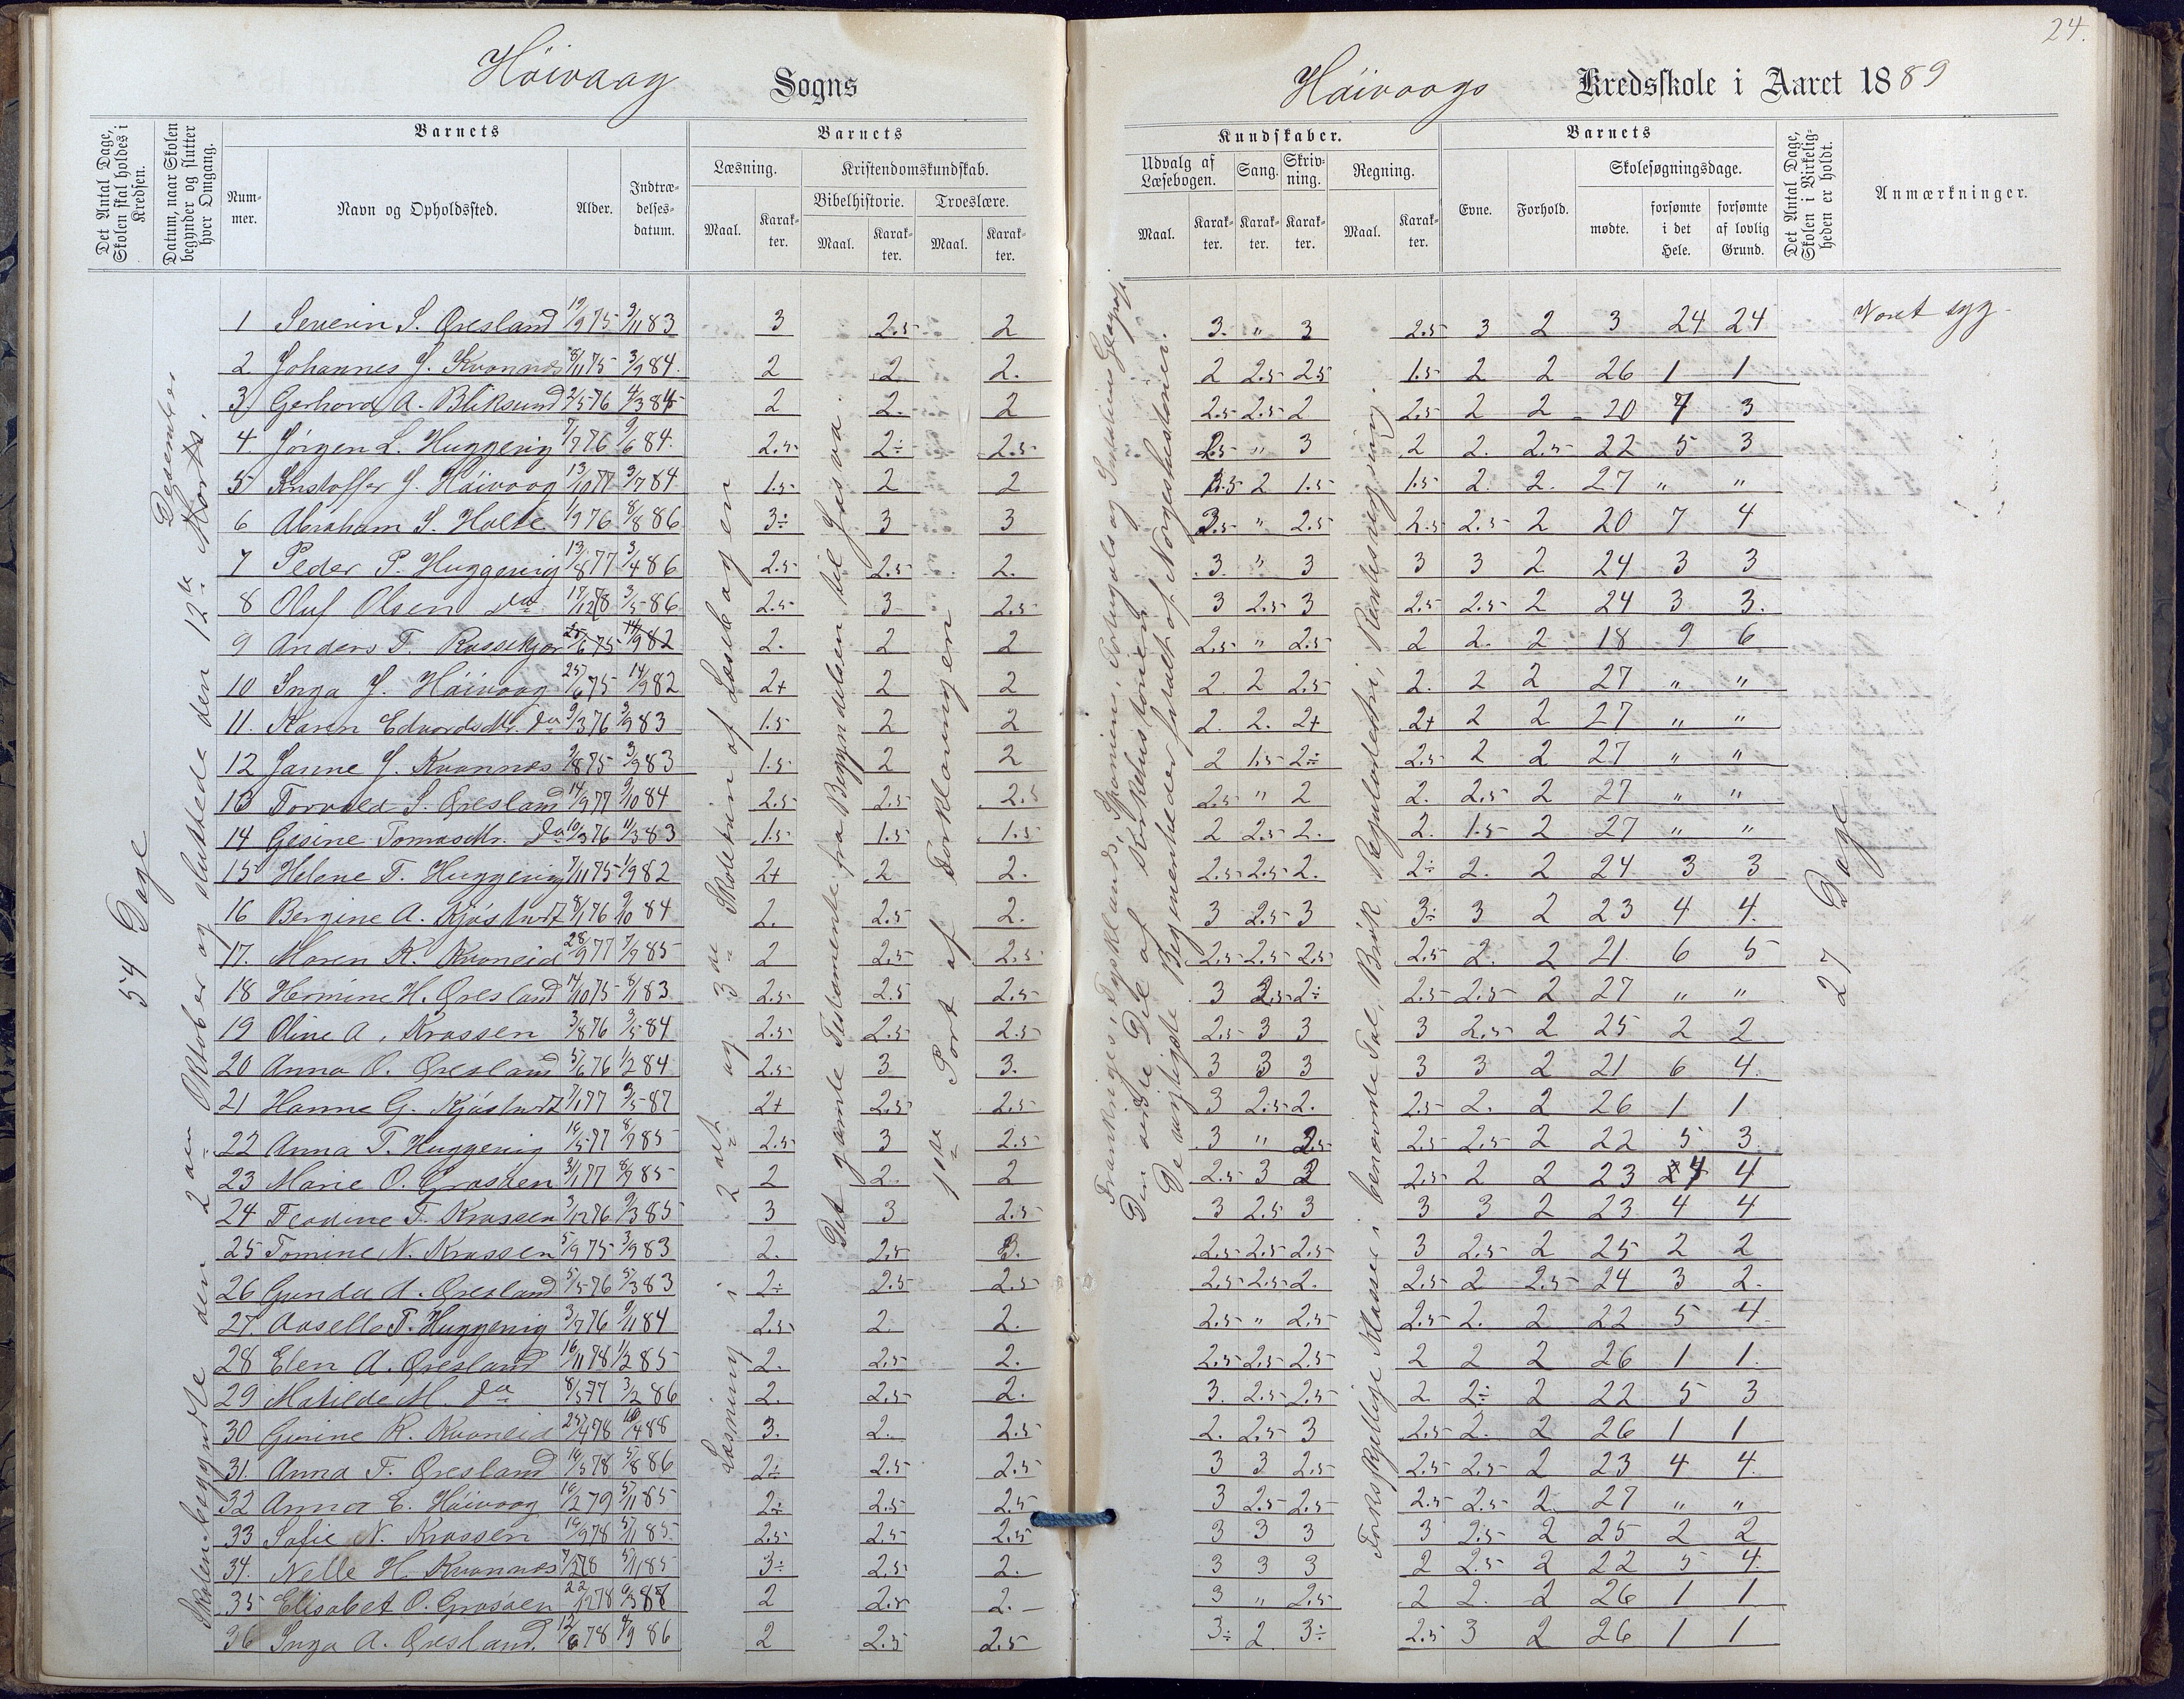 24.
Höivaag Sogns
Höivaags Kredsskole i Aaret 1889
Det Antal Dage, Skolen skal holdes i Kredsen.
Datum, naar Skolen begynder og slutter hver Omgang.
Barnets
Num-mer.
Navn og Opholdssted.
Alder.
Indtræ-delses-datum.
Barnets
Læsning.
Maal.
Karak-ter.
Kristendomskundskab.
Bibelhistorie.
Maal.
Karak-ter.
Troeslære.
Maal.
Karak-ter.
Kundskaber.
Udvalg af Læsebogen.
Maal.
Karak-ter.
Sang.
Karak-ter.
Skriv-ning.
Karak-ter.
Regning.
Maal.
Karak-ter.
Barnets
Evne.
Forhold.
Skolesøgningsdage.
mødte.
forsømte i det Hele.
forsømte af lovlig Grund.
Det Antal Dage, Skolen i Virkelig-heden er holdt.
Anmærkninger.
54 Dage
Skolen begyndte den 2den Oktober og sluttede den 12te Desember
Læsning i 2det og 3die Skoletrin af Læsebogen
Det gamle Testamente fra Begyndelsen til Josva.
1ste Part af Forklaringen
Frankriges, Tysklands, Spaniens, Portugals og Geografi.
Den første Del af Kirkehistorien
De vigtigste Begivenheder fortalt af Norgeshistorien.
Forskjellige Klasser i benævnte Tal, Brøk, Reguladetri, Rentesregning.
27 Dage
1 Severin S. Øresland 19/9 75 9/11 83 3 2.5 2 3. " 3 2.5 3 2 3 24 24 Været syg
2 Johannes J. Kvannes 8/11 75 3/9 84. 2 2 2. 2 2.5 2.5 1.5 2 2 26 1 1
3 Gerhard A. Bliksund 2/5 76 4/3 84 2 2. 2 2.5 2.5 2 2.5 2 2 20 7 3
4 Jörgen L. Huggenig 7/7 76 9/6 84. 2.5 2÷ 2.5 2.5 " 3 2 2. 2.5 22 5 3
5 Kristoffer J. Höivaag 13/10 77 9/7 84 1.5 2 2 1.5 2 1.5 1.5 2. 2. 27 " "
6 Abraham S. Holte 1/9 76 8/8 86 3÷ 3 3 3.5 " 2.5 2.5 2.5 2 20 7 4
7 Peder P. Huggenig 13/8 77 3/4 86 2.5 2.5 2. 3. " 3 3 3 2 24 3 3
8 Oluf Olsen do 17/12 78 3/5 86 2.5 3 2.5 3 2.5 3 2.5 2.5 2 24 3 3.
9 Anders T. Rossekjær 25/6 75 14/9 82 2. 2 2 2.5 " 2.5 2 2. 2 18 9 6
10 Inga J. Höivaag 25/6 75 14/9 82 2+ 2 2 2. 2 2.5 2. 2 2 27 " "
11. Karen Edvardsdtr. do 9/3 76 3/9 83 1.5 2 2 2. 2. 2+ 2+ 2 2 27 " "
12 Janne J. Kvannes 9/8 75 3/9 83 1.5 2 2 2 1.5 2÷ 2.5 2 2 27 " "
13 Torvald S. Øresland 14/9 77 9/10 84 2.5 2.5 2.5 2.5 " 2 2. 2.5 2 27 " "
14 Gesine Tomasdtr. do 10/3 76 11/3 83 1.5 1.5 1.5 2 2.5 2. 2. 1.5 2 27 " "
15 Helene T. Huggenig 7/11 75 1/9 82 2+ 2 2. 2.5 2.5 2. 2÷ 2. 2 24 3 3
16 Bergine A. Kjöstvedt 8/1 76 9/10 84 2. 2.5 2. 3 2.5 3 3÷ 3 2 23 4 4.
17. Maren K. Kvaneid 28/9 77 7/9 85 2 2.5 2.5 2.5 2.5 2.5 2.5 2. 2 21. 6 5
18 Hermine H. Øresland 14/10 75 8/1 83. 2.5 2.5 2.5 3 2.5 2÷ 2.5 2.5 2 27 " "
19 Oline A. Krossen 3/8 76 3/5 84 2.5 2.5 2.5 2.5 3 3 3 2.5 2 25 2 2
20 Anna O. Øresland 5/6 76 1/2 84 2.5 3 3. 3 3 3 3 3 2 21 6 4.
21 Hanne G. Kjöstvedt 7/1 77 9/5 87 2+ 2.5 2.5 3 2.5 2. 2.5 2. 2 26 1 1
22 Anna T. Huggenig 16/5 77 8/9 85 2.5 3 2.5 3 " 2.5 2.5 2.5 2 22 5 3.
23 Marie O. Grosøen 3/1 77 8/9 85 2 2. 2 2.5 3 2 2.5 2 2 23 4 4
24 Teodine T. Krossen 3/12 76 9/3 85 3 3 2.5 3 2.5 3 3 3 2 23 4 4
25 Tomine N. Krossen 5/9 75 3/9 83 2. 2.5 3. 2.5 2.5 2.5 3 2.5 2 25 2 2
26 Gunda A. Øresland 5/5 76 5/3 83 2÷ 2.5 2.5 2.5 2.5 2. 2.5 2 2.5 24 3 2.
27. Aaselle T. Huggenig 3/7 76 9/11 84 2.5 2. 2. 2.5 " 2.5 2.5 2. 2 22 5 4
28 Elen A. Øresland 16/11 78 1/2 85 2. 2.5 2. 2.5 2.5 2.5 2 2 2 26 1 1.
29 Matilde M. do 8/5 77 3/2 86 2. 2.5 2. 3. 2.5 2.5 2 2÷ 2 22 5 3
30 Gurine K. Kvaneid 25/4 78 10/4 88 3. 2. 2.5 2. 2.5 3 2.5 2. 2 26 1 1
31. Anna T. Øresland 16/5 78 5/8 86 2÷ 2.5 2.5 3 3 2.5 2.5 2.5 2 23 4 4.
32 Anna E. Höivaag 16/2 79 5/11 85 2÷ 2.5 2.5 3 2.5 2.5 2.5 2.5 2 27 " "
33 Sofie N. Krossen 16/9 78 5/1 85 2.5 2.5 2.5 3 3 3 3 2.5 2 25 2 2
34. Nelle H. Kvannes 7/3 78 5/1 85 3÷ 2.5 2. 3 3 3 2 2.5 2 22 5 4.
35 Elisabet O. Grosøen 22/12 78 9/3 87 2 2.5 2. 3 " 2.5 2 2. 2 26 1 1
36 Inga A. Øresland. 12/6 78 4/9 86 2 2.5 2.5 3÷ 2. 3÷ 2.5 3 2 26 1 1